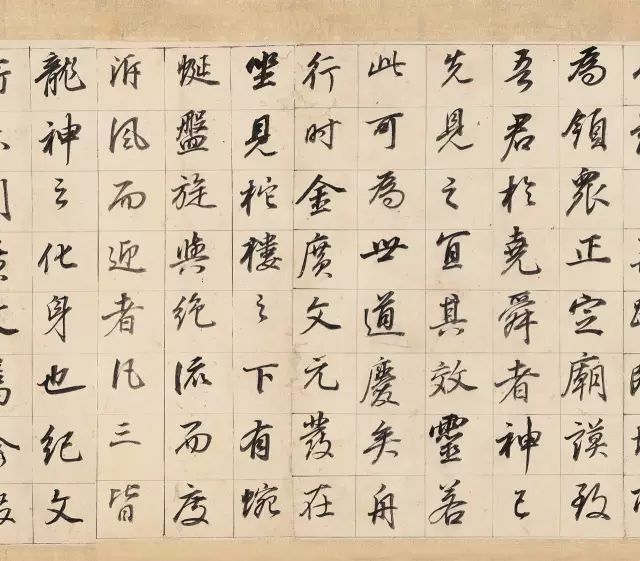 為領眾正定廟謨致
吾君於堯舜者神已
先見之宜其效靈若
此可為世道慶矣舟
行时金廣文元發在
坐見柁樓之下有蜿
蜒盤旋與絕流而度
泝風而迎者凡三皆
龍神之化身也紀文